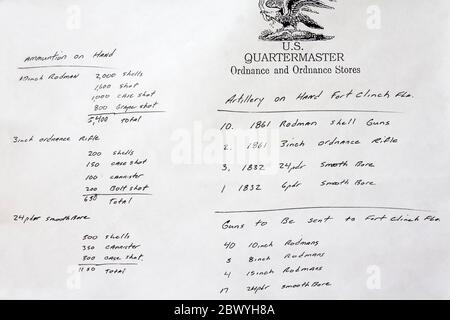 U.S.
QUARTERMASTER
Ordnance and Ordnance Stores
Ammuntion on Hand
10inch Rodman 2,000 shells
1,600 shot
1,000 case shot
800 Grape shot
5,400 Total
3inch ordnance Rifle
200 shells
150 case shot
100 cannister
200 Bolt shot
650 Total
24pdr smoothBore
500 shells
350 cannister
300 case shot
1150 Total
Artillery on Hand Fort Clinch Fla.
10. 1861 Rodman shell Guns
2. 1861 3inch ordnance Rifle
3. 1832 24pdr smooth Bore
1 1832 6pdr smooth Bore
Guns to Be sent to Fort Clinch Fla.
40 10inch Rodmans
5 8inch Rodmans
4 15inch Rodmans
17 24pdr smooth Bore
alamy
Image ID: 2BWYH8A
www.alamy.com